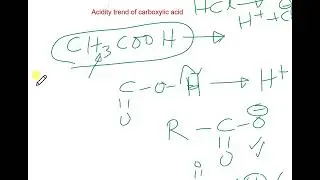 Acidity trend of carboxylic acid
HCl →
H⁺ + Cl
CH₃COOH →
C - O - H → H⁺
O
R - C - O ⊖
O